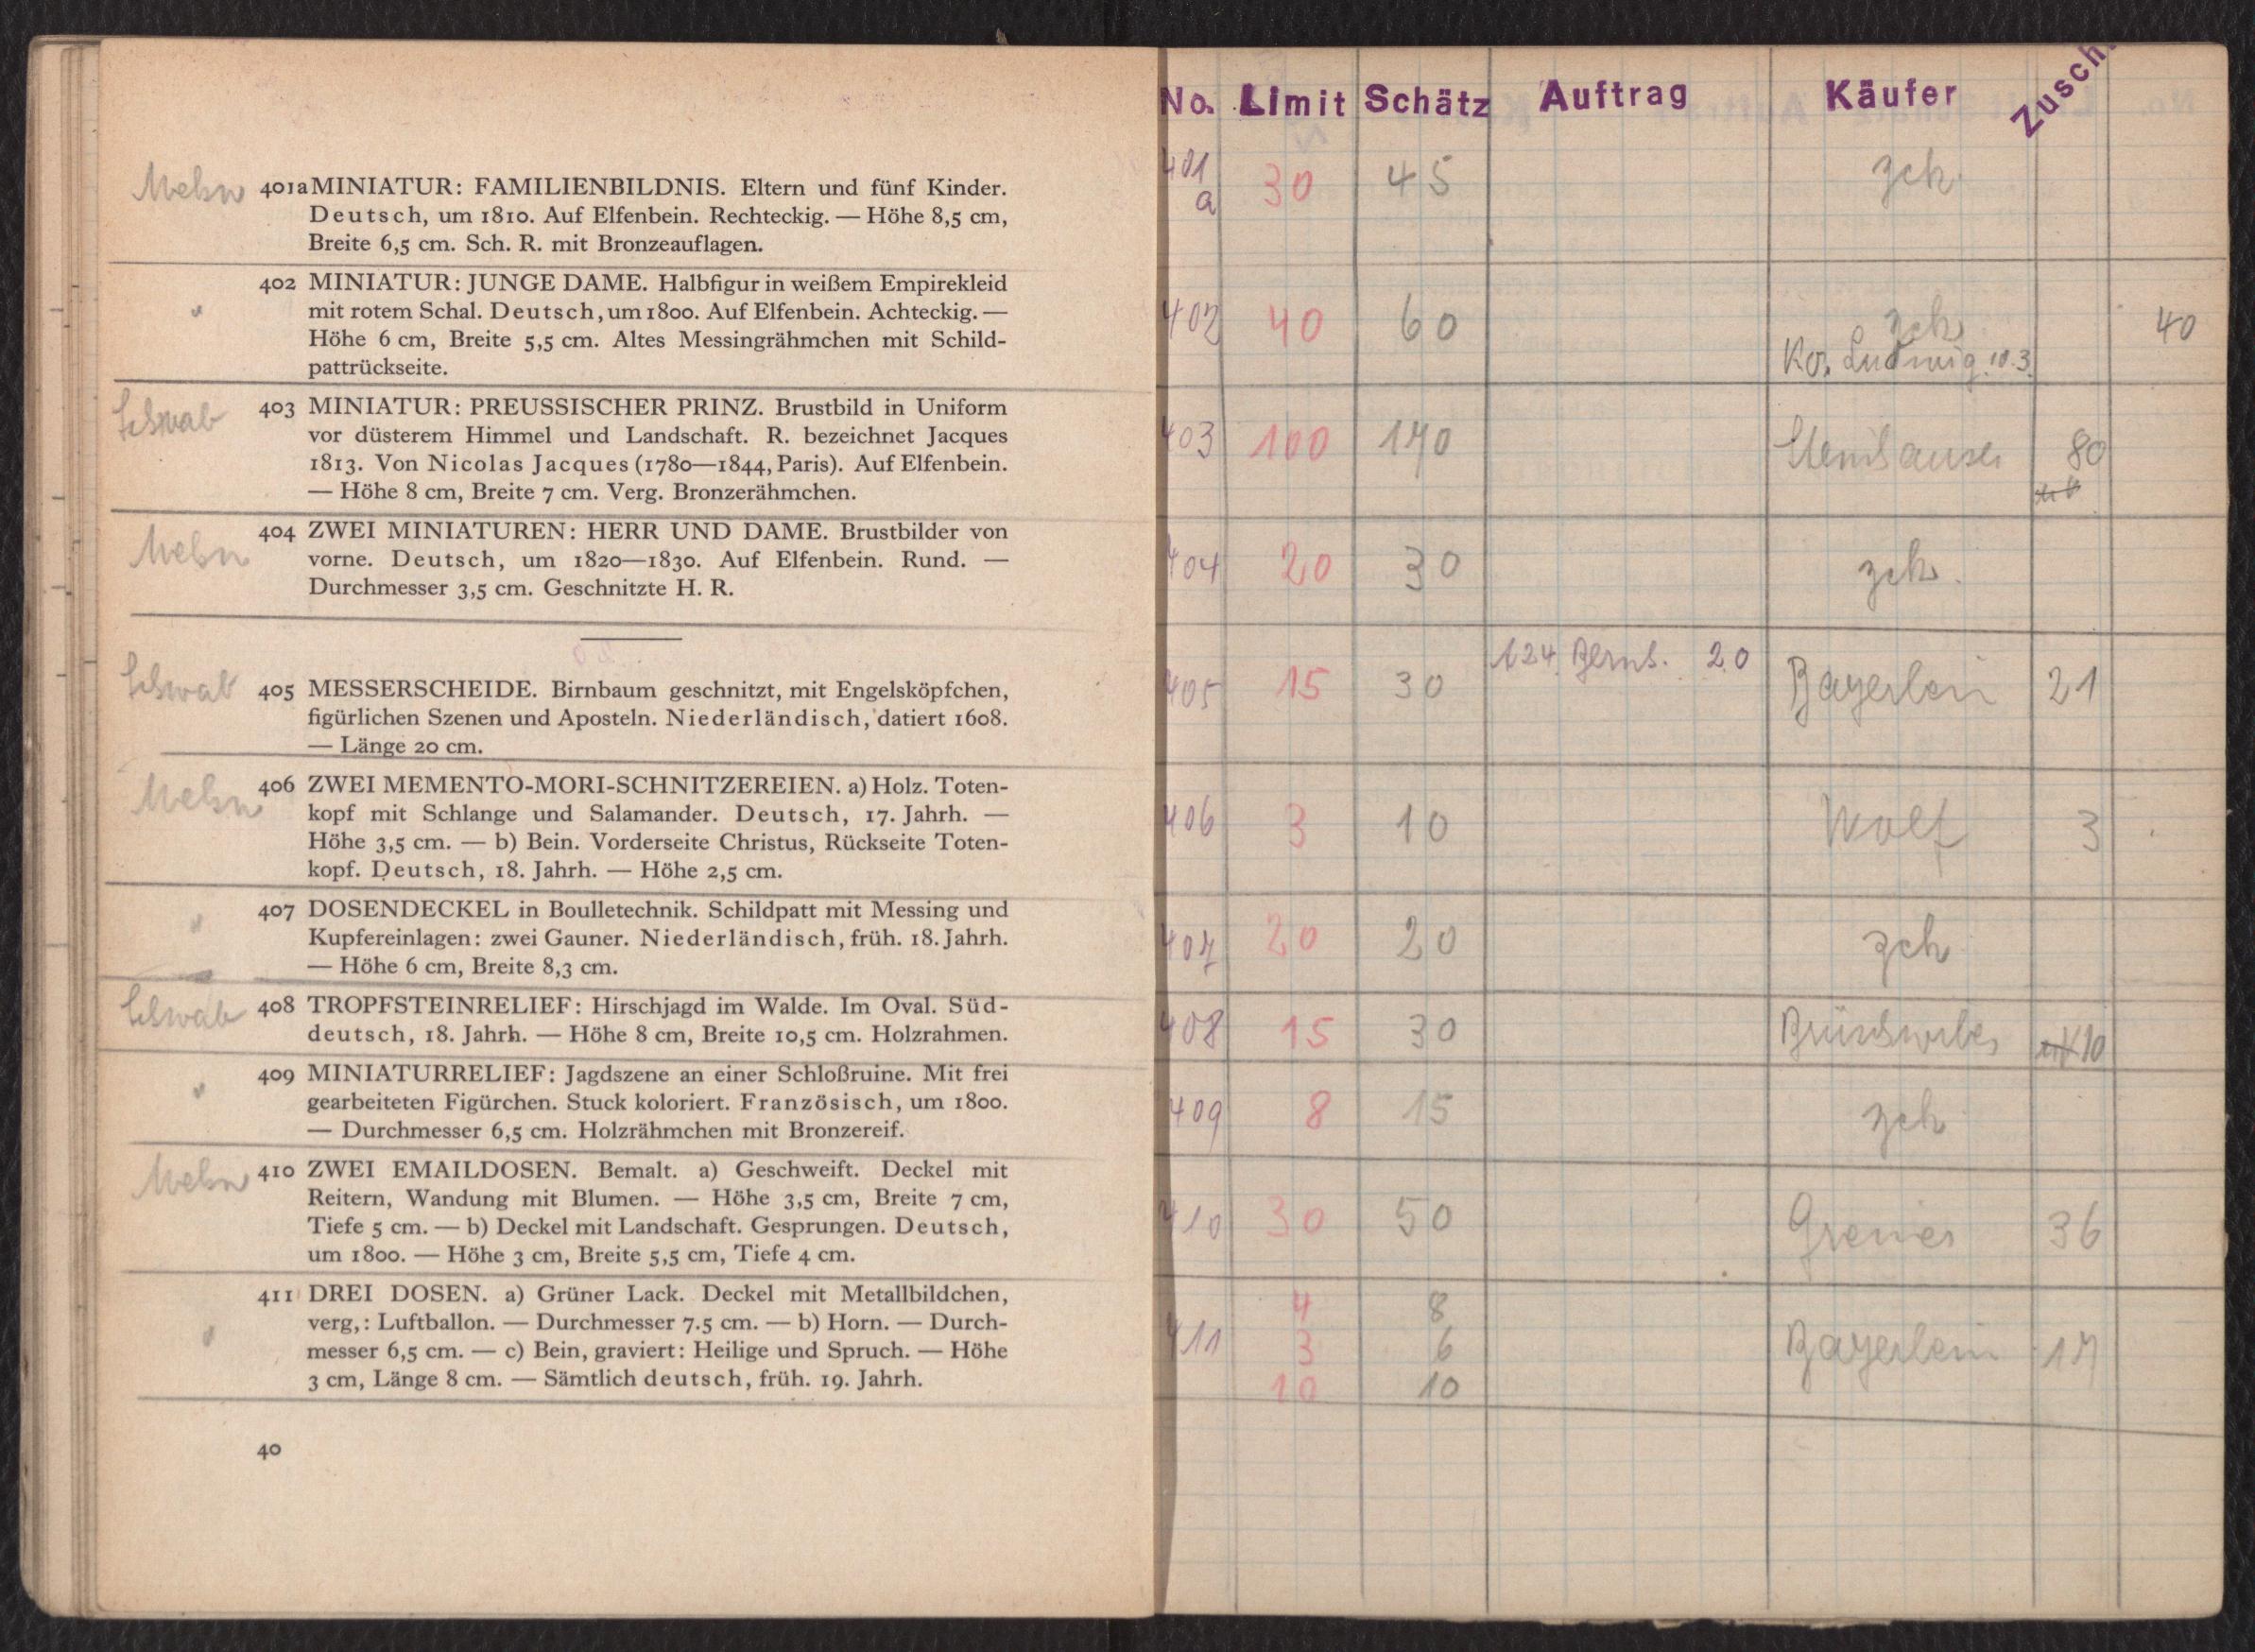 401a MINIATUR: FAMILIENBILDNIS. Eltern und fünf Kinder.
Deutsch, um 1810. Auf Elfenbein. Rechteckig. — Höhe 8,5 cm,
Breite 6,5 cm. Sch. R. mit Bronzeauflagen.
402 MINIATUR: JUNGE DAME. Halbfigur in weißem Empirekleid
mit rotem Schal. Deutsch, um 1800. Auf Elfenbein. Achteckig. —
Höhe 6 cm, Breite 5,5 cm. Altes Messingrähmchen mit Schild-
pattrückseite.
Schwab 403 MINIATUR: PREUSSISCHER PRINZ. Brustbild in Uniform
vor düsterem Himmel und Landschaft. R. bezeichnet Jacques
1813. Von Nicolas Jacques (1780—1844, Paris). Auf Elfenbein.
— Höhe 8 cm, Breite 7 cm. Verg. Bronzerähmchen.
404 ZWEI MINIATUREN: HERR UND DAME. Brustbilder von
vorne. Deutsch, um 1820—1830. Auf Elfenbein. Rund. —
Durchmesser 3,5 cm. Geschnitzte H. R.
Schwab 405 MESSERSCHEIDE. Birnbaum geschnitzt, mit Engelsköpfchen,
figürlichen Szenen und Aposteln. Niederländisch, datiert 1608.
— Länge 20 cm.
406 ZWEI MEMENTO-MORI-SCHNITZEREIEN. a) Holz. Toten-
kopf mit Schlange und Salamander. Deutsch, 17. Jahrh. —
Höhe 3,5 cm. — b) Bein. Vorderseite Christus, Rückseite Toten-
kopf. Deutsch, 18. Jahrh. — Höhe 2,5 cm.
407 DOSENDECKEL in Boulletechnik. Schildpatt mit Messing und
Kupfereinlagen: zwei Gauner. Niederländisch, früh. 18. Jahrh.
— Höhe 6 cm, Breite 8,3 cm.
Schwab 408 TROPFSTEINRELIEF: Hirschjagd im Walde. Im Oval. Süd-
deutsch, 18. Jahrh. — Höhe 8 cm, Breite 10,5 cm. Holzrahmen.
409 MINIATURRELIEF: Jagdszene an einer Schloßruine. Mit frei
gearbeiteten Figürchen. Stuck koloriert. Französisch, um 1800.
— Durchmesser 6,5 cm. Holzrähmchen mit Bronzereif.
410 ZWEI EMAILDOSEN. Bemalt. a) Geschweift. Deckel mit
Reitern, Wandung mit Blumen. — Höhe 3,5 cm, Breite 7 cm,
Tiefe 5 cm. — b) Deckel mit Landschaft. Gesprungen. Deutsch,
um 1800. — Höhe 3 cm, Breite 5,5 cm, Tiefe 4 cm.
411 DREI DOSEN. a) Grüner Lack. Deckel mit Metallbildchen,
verg,: Luftballon. — Durchmesser 7.5 cm. — b) Horn. — Durch-
messer 6,5 cm. — c) Bein, graviert: Heilige und Spruch. — Höhe
3 cm, Länge 8 cm. — Sämtlich deutsch, früh. 19. Jahrh.
40
No. Limit Schätz Auftrag Käufer Zusch.
401 a 30 45 zck
402 40 60 zck 40
Ko. Ludwig 10.3.
403 100 140 80
404 20 30 zck.
405 15 30 124 Bernh. 20 Bayerlein 21
406 3 10 Wolf 3
407 20 20 zck
408 15 30 10
409 8 15 zck
410 30 50 Greiner 36
4 8
411 3 6 Bayerlein 17
10 10